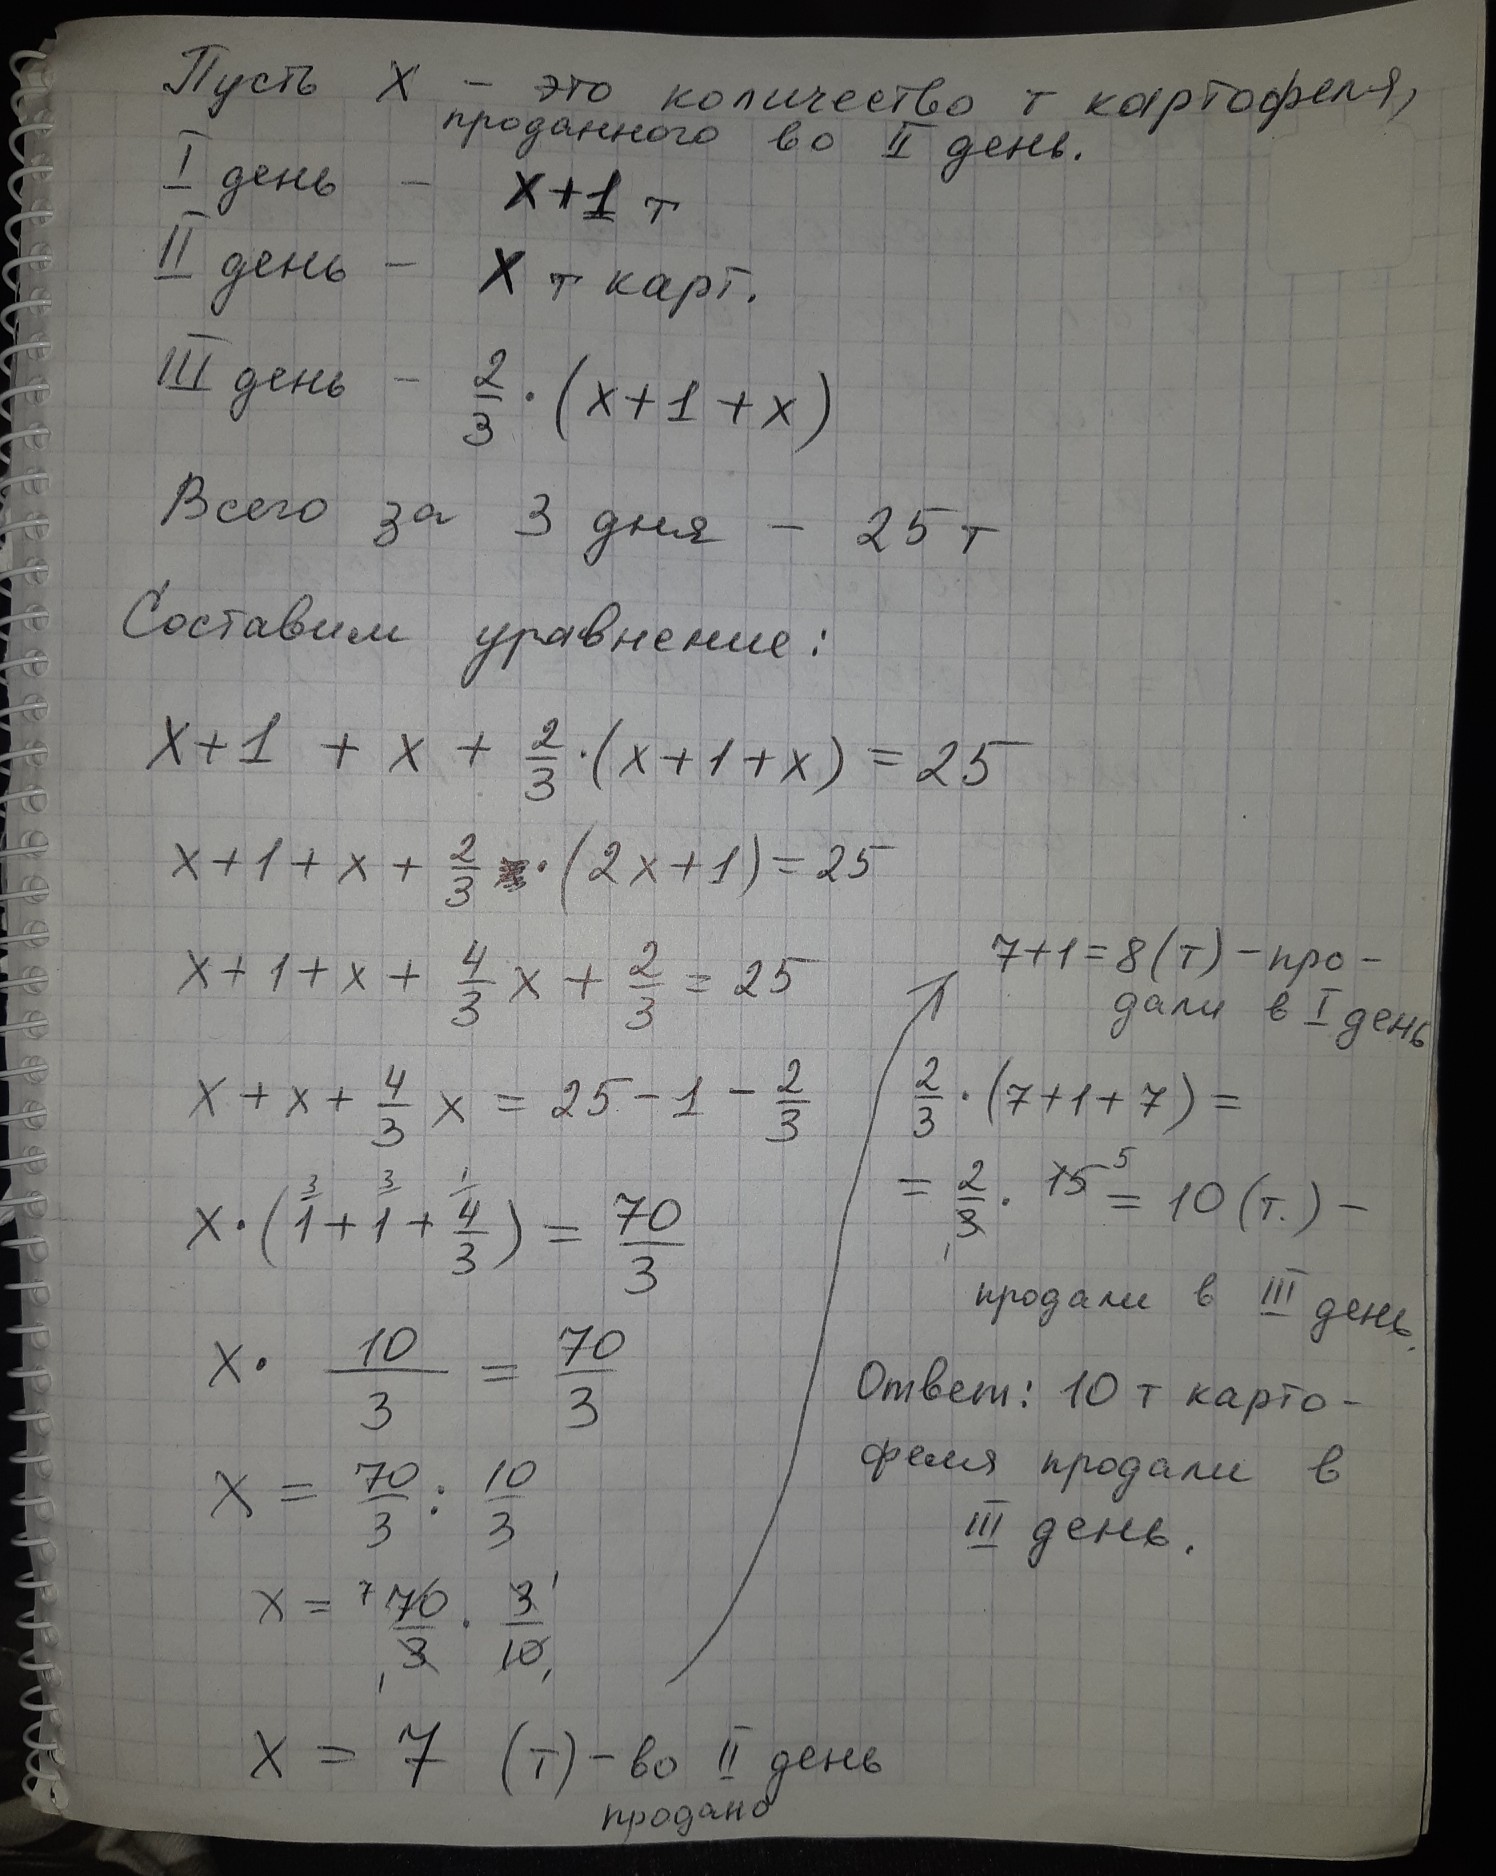 Пусть X – это количество т картофеля,
проданного во II день.
I день – x+1 т
II день – X т карт.
III день – 2/3 · (x+1+x)
Всего за 3 дня – 25 т
Составим уравнение:
x+1 + x + 2/3 · (x+1+x) = 25
x+1+x+ 2/3 · (2x+1) = 25
x+1+x+ 4/3 x + 2/3 = 25
x+x+ 4/3 x = 25-1- 2/3
x·(1 3/ + 1 3/ + 4/3 1/) = 70/3
x· 10/3 = 70/3
x = 70/3 : 10/3
x = 7 70/3 1 · 3 1/10 1
x = 7 (т) – во II день
продано
7+1=8(т) – про-
дали в I день
2/3 · (7+1+7) =
= 2/3 1 · 15 5 = 10 (т.) –
продали в III день.
Ответ: 10 т карто-
феля продали в
III день.